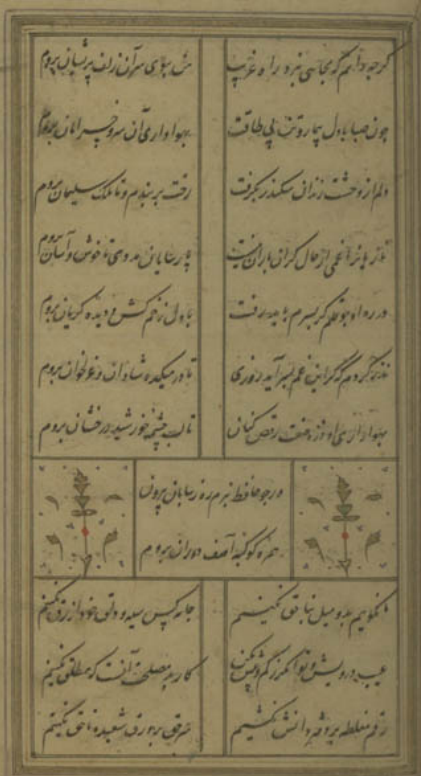 گرچه دانم که بجائی نبرد راه غریب
من ببوی سر آن زلف پریشان بروم
چون صبا با دل بیمار و تن بی طاقت
بهواداری آن سرو خرامان بروم
دلم از وحشت زندان سکندر بگرفت
رخت بربندم و تا ملک سلیمان بروم
تازیانرا غمی از حال گران باران نیست
پارسایان مددی تا خوش و آسان بروم
در ره او چو قلم گر بسرم باید رفت
با دل زخم کش و دیده گریان بروم
نذر کردم که گر این غم بسر آید روزی
تا در میکده شادان و غزلخوان بروم
بهواداری او ذره صفت رقص کنان
تا لب چشمه خورشید درخشان بروم
ور چو حافظ نبرم ره ز بیابان بیرون
همره کوکبه آصف دوران بروم
ما نگوییم بد و میل بناحق نکنیم
جامه کس سیه و دلق خود ازرق نکنیم
عیب درویش و توانگر بکم و بیش
کار بد مصلحت آنست که مطلق نکنیم
رقم مغلطه بر دفتر دانش نکشیم
سر حق بر ورق شعبده ملحق نکنیم